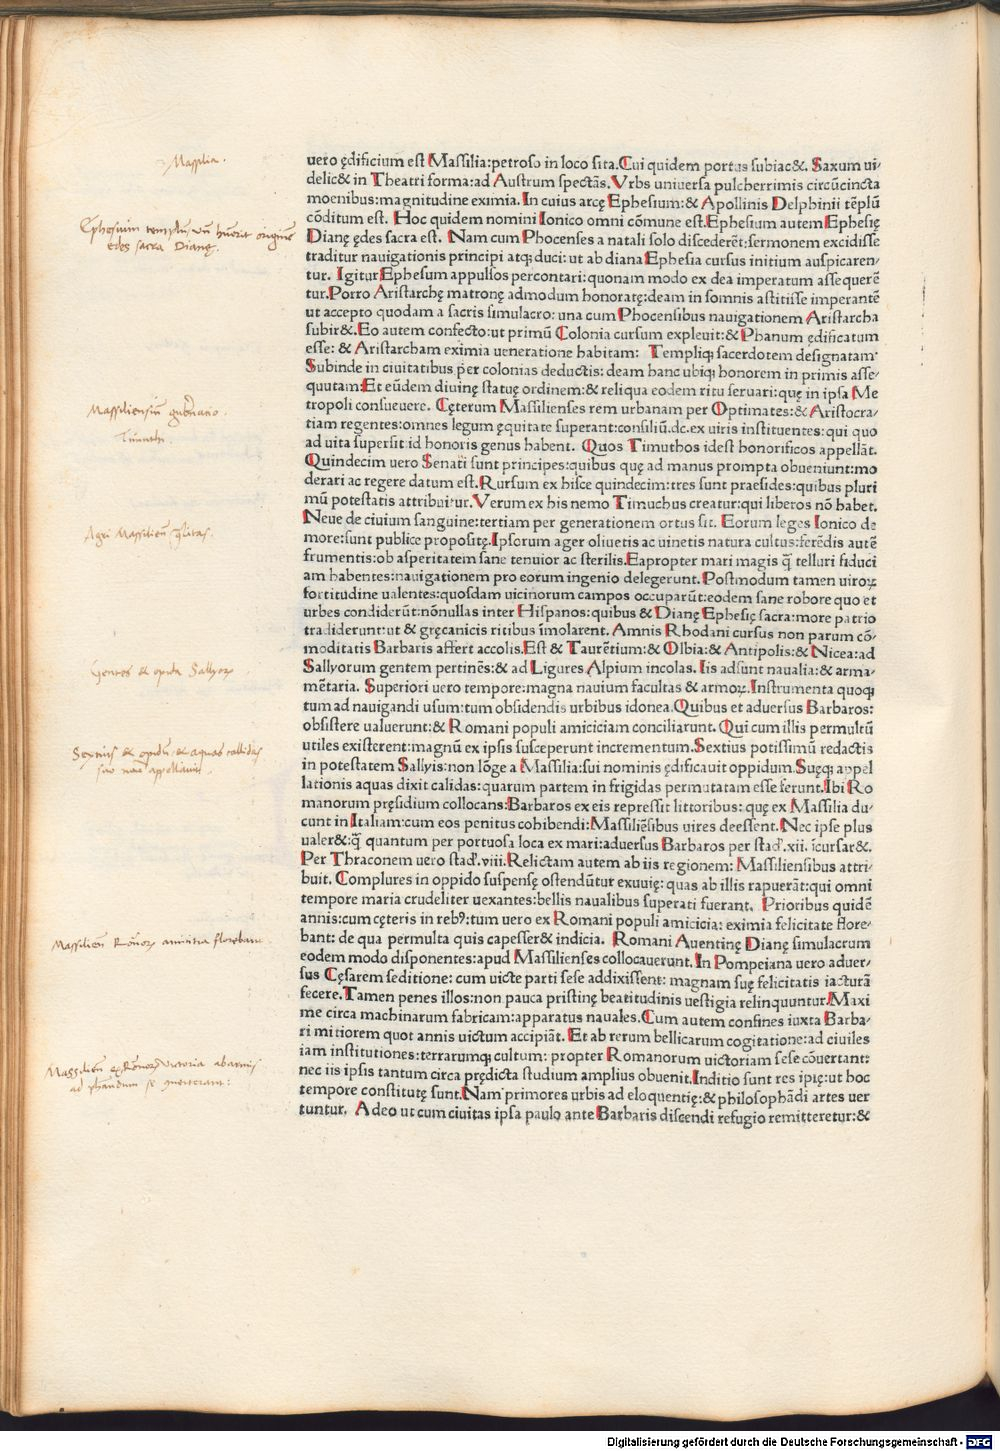 Massilia.
Ephesium templum
edes sacra Dianę.
Massiliensium gubernacio.
Timuchi
Agri Massilien̄ q̄litas.
Gentes et opida Sallyorꝝ
Sextius et opidū et aquas callidas
suo noīe appellauit
Massilien̄ Romanorꝝ amicitia florebant
Massilien̄
ad
uero ędificium est Massilia:petroso in loco sita.Cui quidem portus subiac&. Saxum ui⸗
delic& in Theatri forma:ad Austrum spectās.Vrbs uniuersa pulcherrimis circūcincta
moenibus:magnitudine eximia.In cuius arcę Ephesium:& Apollinis Delphinii tēplū
cōditum est. Hoc quidem nomini Ionico omni cōmune est.Ephesium autem Ephesię
Dianę ędes sacra est. Nam cum Phocenses a natali solo discederēt:sermonem excidisse
traditur nauigationis principi atq; duci:ut ab diana Ephesia cursus initium auspicaren⸗
tur. Igitur Ephesum appulsos percontari:quonam modo ex dea imperatum assequerē
tur.Porro Aristarchę matronę admodum honoratę:deam in somnis astitisse imperantē
ut accepto quodam a sacris simulacro:una cum Phocensibus nauigationem Aristarcha
subir&.Eo autem confecto:ut primū Colonia cursum expleuit:& Phanum ędificatum
esse: & Aristarcham eximia ueneratione habitam: Templiq; sacerdotem designatam.
Subinde in ciuitatibus per colonias deductis:deam hanc ubiq; honorem in primis asse⸗
quutam:Et eūdem diuinę statuę ordinem:& reliqua eodem ritu seruari:quę in ipsa Me
tropoli consueuere. Cęterum Massilienses rem urbanam per Optimates:& Aristocra⸗
tiam regentes:omnes legum ęquitate superant:consiliū.dc.ex uiris instituentes:qui quo
ad uita supersit id honoris genus habent. Quos Timuthos idest honorificos appellāt.
Quindecim uero Senati sunt principes:quibus quę ad manus prompta obueniunt:mo
derari ac regere datum est.Rursum ex hisce quindecim:tres sunt praesides:quibus pluri
mū potestatis attribuitur.Verum ex his nemo Timuchus creatur:qui liberos nō habet.
Neue de ciuium sanguine:tertiam per generationem ortus sit. Eorum leges Ionico de
more:sunt publice propositę.Ipsorum ager oliuetis ac uinetis natura cultus:ferēdis autē
frumentis:ob asperitatem sane tenuior ac sterilis.Eapropter mari magis q̄ telluri fiduci
am habentes:nauigationem pro eorum ingenio delegerunt.Postmodum tamen uiroꝝ
fortitudine ualentes:quosdam uicinorum campos occuparūt:eodem sane robore quo et
urbes condiderūt:nōnullas inter Hispanos:quibus & Dianę Ephesię sacra:more patrio
tradiderunt:ut & gręcanicis ritibus īmolarent. Amnis Rhodani cursus non parum cō⸗
moditatis Barbaris affert accolis.Est & Taurētium:& Olbia:& Antipolis:& Nicea:ad
Sallyorum gentem pertinēs:& ad Ligures Alpium incolas. Iis adsunt naualia:& arma⸗
mētaria. Superiori uero tempore:magna nauium facultas & armoꝝ.Instrumenta quoq;
tum ad nauigandi usum:tum obsidendis urbibus idonea.Quibus et aduersus Barbaros:
obsistere ualuerunt:& Romani populi amiciciam conciliarunt. Qui cum illis permultū
utiles existerent:magnū ex ipsis susceperunt incrementum.Sextius potissimū redactis
in potestatem Sallyis:non lōge a Massilia:sui nominis ędificauit oppidum.Suęq; appel
lationis aquas dixit calidas:quarum partem in frigidas permutatam esse ferunt.Ibi Ro
manorum pręsidium collocans:Barbaros ex eis repressit littoribus:quę ex Massilia du⸗
cunt in Italiam:cum eos penitus cohibendi:Massiliēsibus uires deessent. Nec ipse plus
ualer&:q̄ quantum per portuosa loca ex mari:aduersus Barbaros per stad̄.xii. īcursar&.
Per Thraconem uero stad̄.viii.Relictam autem ab iis regionem: Massiliensibus attri⸗
buit. Complures in oppido suspensę ostendūtur exuuię:quas ab illis rapuerāt:qui omni
tempore maria crudeliter uexantes:bellis naualibus superati fuerant. Prioribus quidē
annis:cum cęteris in rebꝰ:tum uero ex Romani populi amicicia: eximia felicitate flore⸗
bant: de qua permulta quis capesser& indicia. Romani Auentinę Dianę simulacrum
eodem modo disponentes:apud Massilienses collocauerunt.In Pompeiana uero aduer⸗
sus Cęsarem seditione: cum uicte parti sese addixissent: magnam suę felicitatis iacturā
fecere.Tamen penes illos:non pauca pristinę beatitudinis uestigia relinquuntur.Maxi
me circa machinarum fabricam:apparatus nauales.Cum autem confines iuxta Barba⸗
ri mitiorem quot annis uictum accipiāt. Et ab rerum bellicarum cogitatione:ad ciuiles
iam institutiones:terrarumq; cultum: propter Romanorum uictoriam sese cōuertant:
nec iis ipsis tantum circa prędicta studium amplius obuenit.Inditio sunt res ipsę:ut hoc
tempore constitutę sunt.Nam primores urbis ad eloquentię:& philosophādi artes uer
tuntur. Adeo ut cum ciuitas ipsa paulo ante Barbaris discendi refugio remitteretur:&
Digitalisierung gefördert durch die Deutsche Forschungsgemeinschaft - DFG